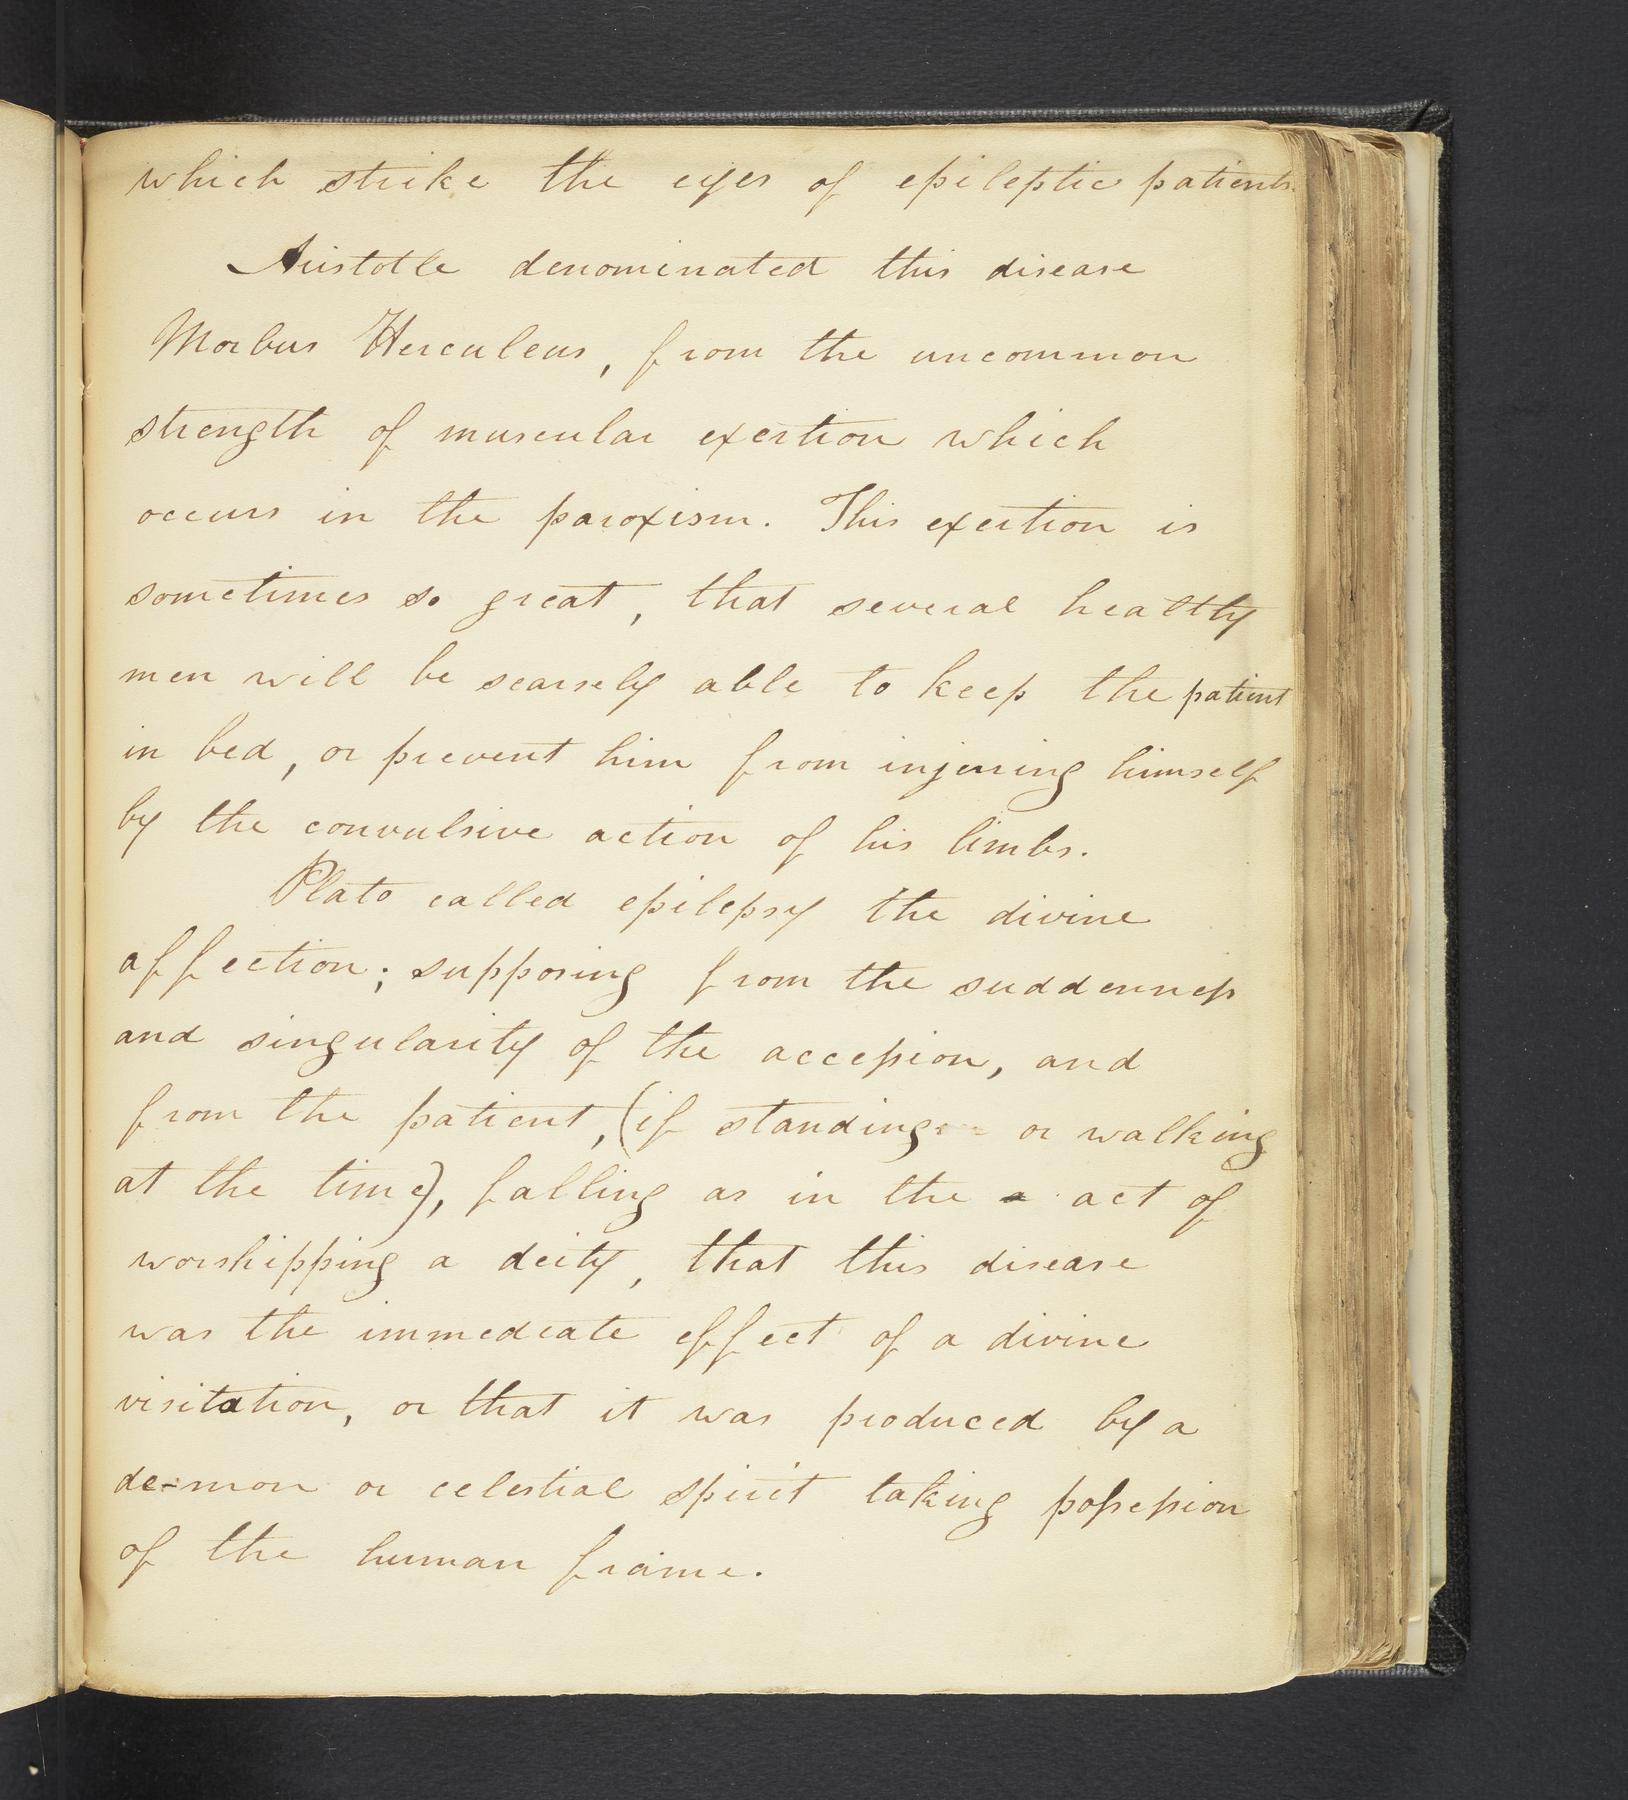 which strike the eyes of epileptic patients.
Aristotle denominated this disease
Morbus Herculeus, from the uncommon
strength of muscular exertion which
occurs in the paroxism. This exertion is
sometimes so great, that several healthy
men will be scarsely able to keep the patient
in bed, or prevent him from injuring himself
by the convulsive action of his limbs.
Plato called epilepsy the divine
affection; supposing from the suddenness
and singularity of the accession, and
from the patient, (if standing or walking
at the time), falling as in the act of
worshipping a deity, that this disease
was the immedeate effect of a divine
visitation, or that it was produced by a
de-mon or celestial spirit taking possession
of the human frame.